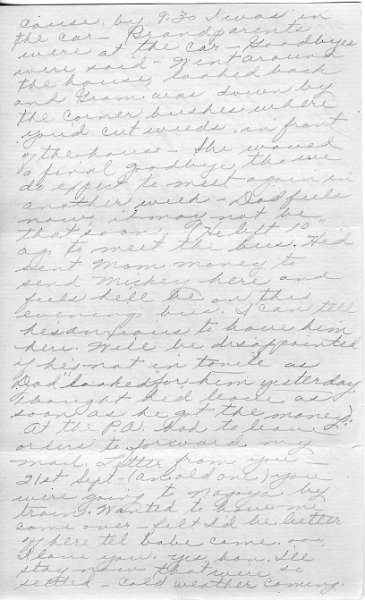 cause by 9:30 I was in
the car - Grandparents
were at the car - Goodbyes
were said - Went around
the house, looked back
and Gram was down by
the corner bushes where
you'd cut weeds, in front
of the house - She waved
a final goodbye tho we
do expect to meet again in
another week - Dad feels
now, it may not be
that soon. He left 10"
ago to meet the bus. He'd
sent Mom money to
send Mickey here and
feels he'll be on this
evening bus. I can tell
he's anxious to have him
here. Will be disappointed
if he's not in tonite as
Dad looked for him yesterday
Thought he'd leave as
soon as he got the money.
At the P.O. Had to leave
orders to forward my
mail. Letter from you -
21st Sept - (an old one) you
were going to Nagoya by
train. Wanted to have me
come over - felt I'd be better
off here til babe came.
I love you. yes hon. I'll
stay now that we're so
settled - cold weather coming.